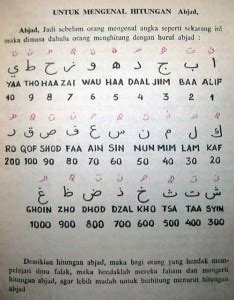 UNTUK MENGENAL HITUNGAN Abjad,
Abjad, Jadi sebelum orang mengenal angka seperti sekarang ini
maka dinasa dahulu orang menghitung dengan huruf abjad :
ا ب ج د ه و ز ح ط ي
YAA THO HAA ZAI WAU HAA DAAL JIIM BAA ALIF
10 9 8 7 6 5 4 3 2 1
ك ل م ن س ع ف ص ق ر
RO QOF SHOD FAA AIN SIN NUN MIM LAM KAF
200 100 90 80 70 60 50 40 30 20
ش ت ث خ ذ ض ظ غ
GHOIN ZHO DHOD DZAL KHO TSA TAA SYIN
1000 900 800 700 600 500 400 300
Demiklan hitungan abjad, maka bagi orang yang hendak mem-
pelajari ilmu falak, maka hendaklah mereka faham dan mengerti
hitungan abjad, agar lebih mudah untuk berhitung menurut hitungan
abjad